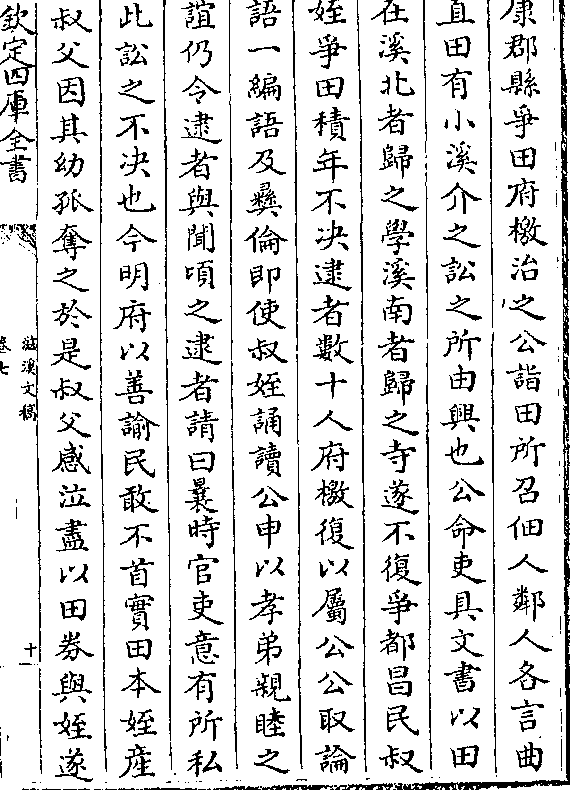 康郡縣爭田府檄治之公詣田所召佃人鄰人各言曲
直田有小溪介之訟之所由興也公命吏具文書以田
在溪北者歸之學溪南者歸之寺遂不復爭都昌民叔
姪爭田積年不決逮者數十人府檄復以屬公公取論
語一編語及彛倫即使叔姪誦讀公申以孝弟親睦之
誼仍令逮者與聞頃之逮者請曰曩時官吏意有所私
此訟之不決也今明府以善諭民敢不首實田本姪産
叔父因其幼孤奪之於是叔父感泣盡以田券與姪遂
欽定四庫全書
溪文稿
卷七
十一